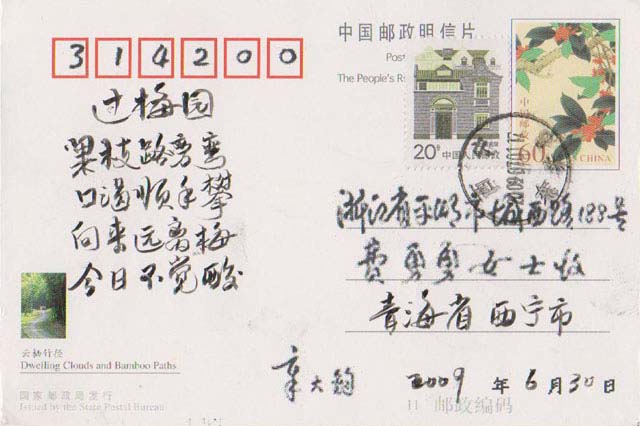 314200
过梅园
果枝路旁弯
口渴顺手攀
向来远离梅
今日不觉酸
云栖竹径
Dwelling Clouds and Bamboo Paths
国家邮政局发行
Issued by the State Postal Bureau
中国邮政明信片
Post
The People's R
20分 中国人民邮政
中国邮政
60
CHINA
浙江省平湖市城西路188号
费勇勇女士收
青海省西宁市
章大钧 2009年6月30日
邮政编码